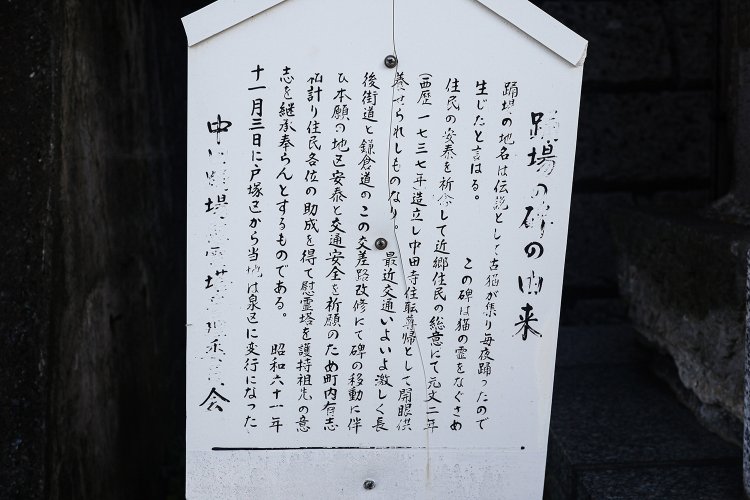 踊場の碑の由来
踊場の地名は伝説として古猫が集り毎夜踊ったので
生じたと言はる。　この碑は猫の霊をなぐさめ
住民の安泰を祈念して近郷住民の総意にて元文二年
(西歴一七三七年造立し中田寺住転尊帰として開眼供
養せられしものなり。　最近交通いよいよ激しく長
後街道と鎌倉道のこの交差路改修にて碑の移動に伴
ひ本願の地区安泰と交通安全を祈願のため町内有志
相計り住民各位の助成を得て慰霊塔を護持祖先の意
志を継承奉らんとするものである。　昭和六十一年
十一月三日に戸塚区から当地は泉区に変行になった
中田踊場 会